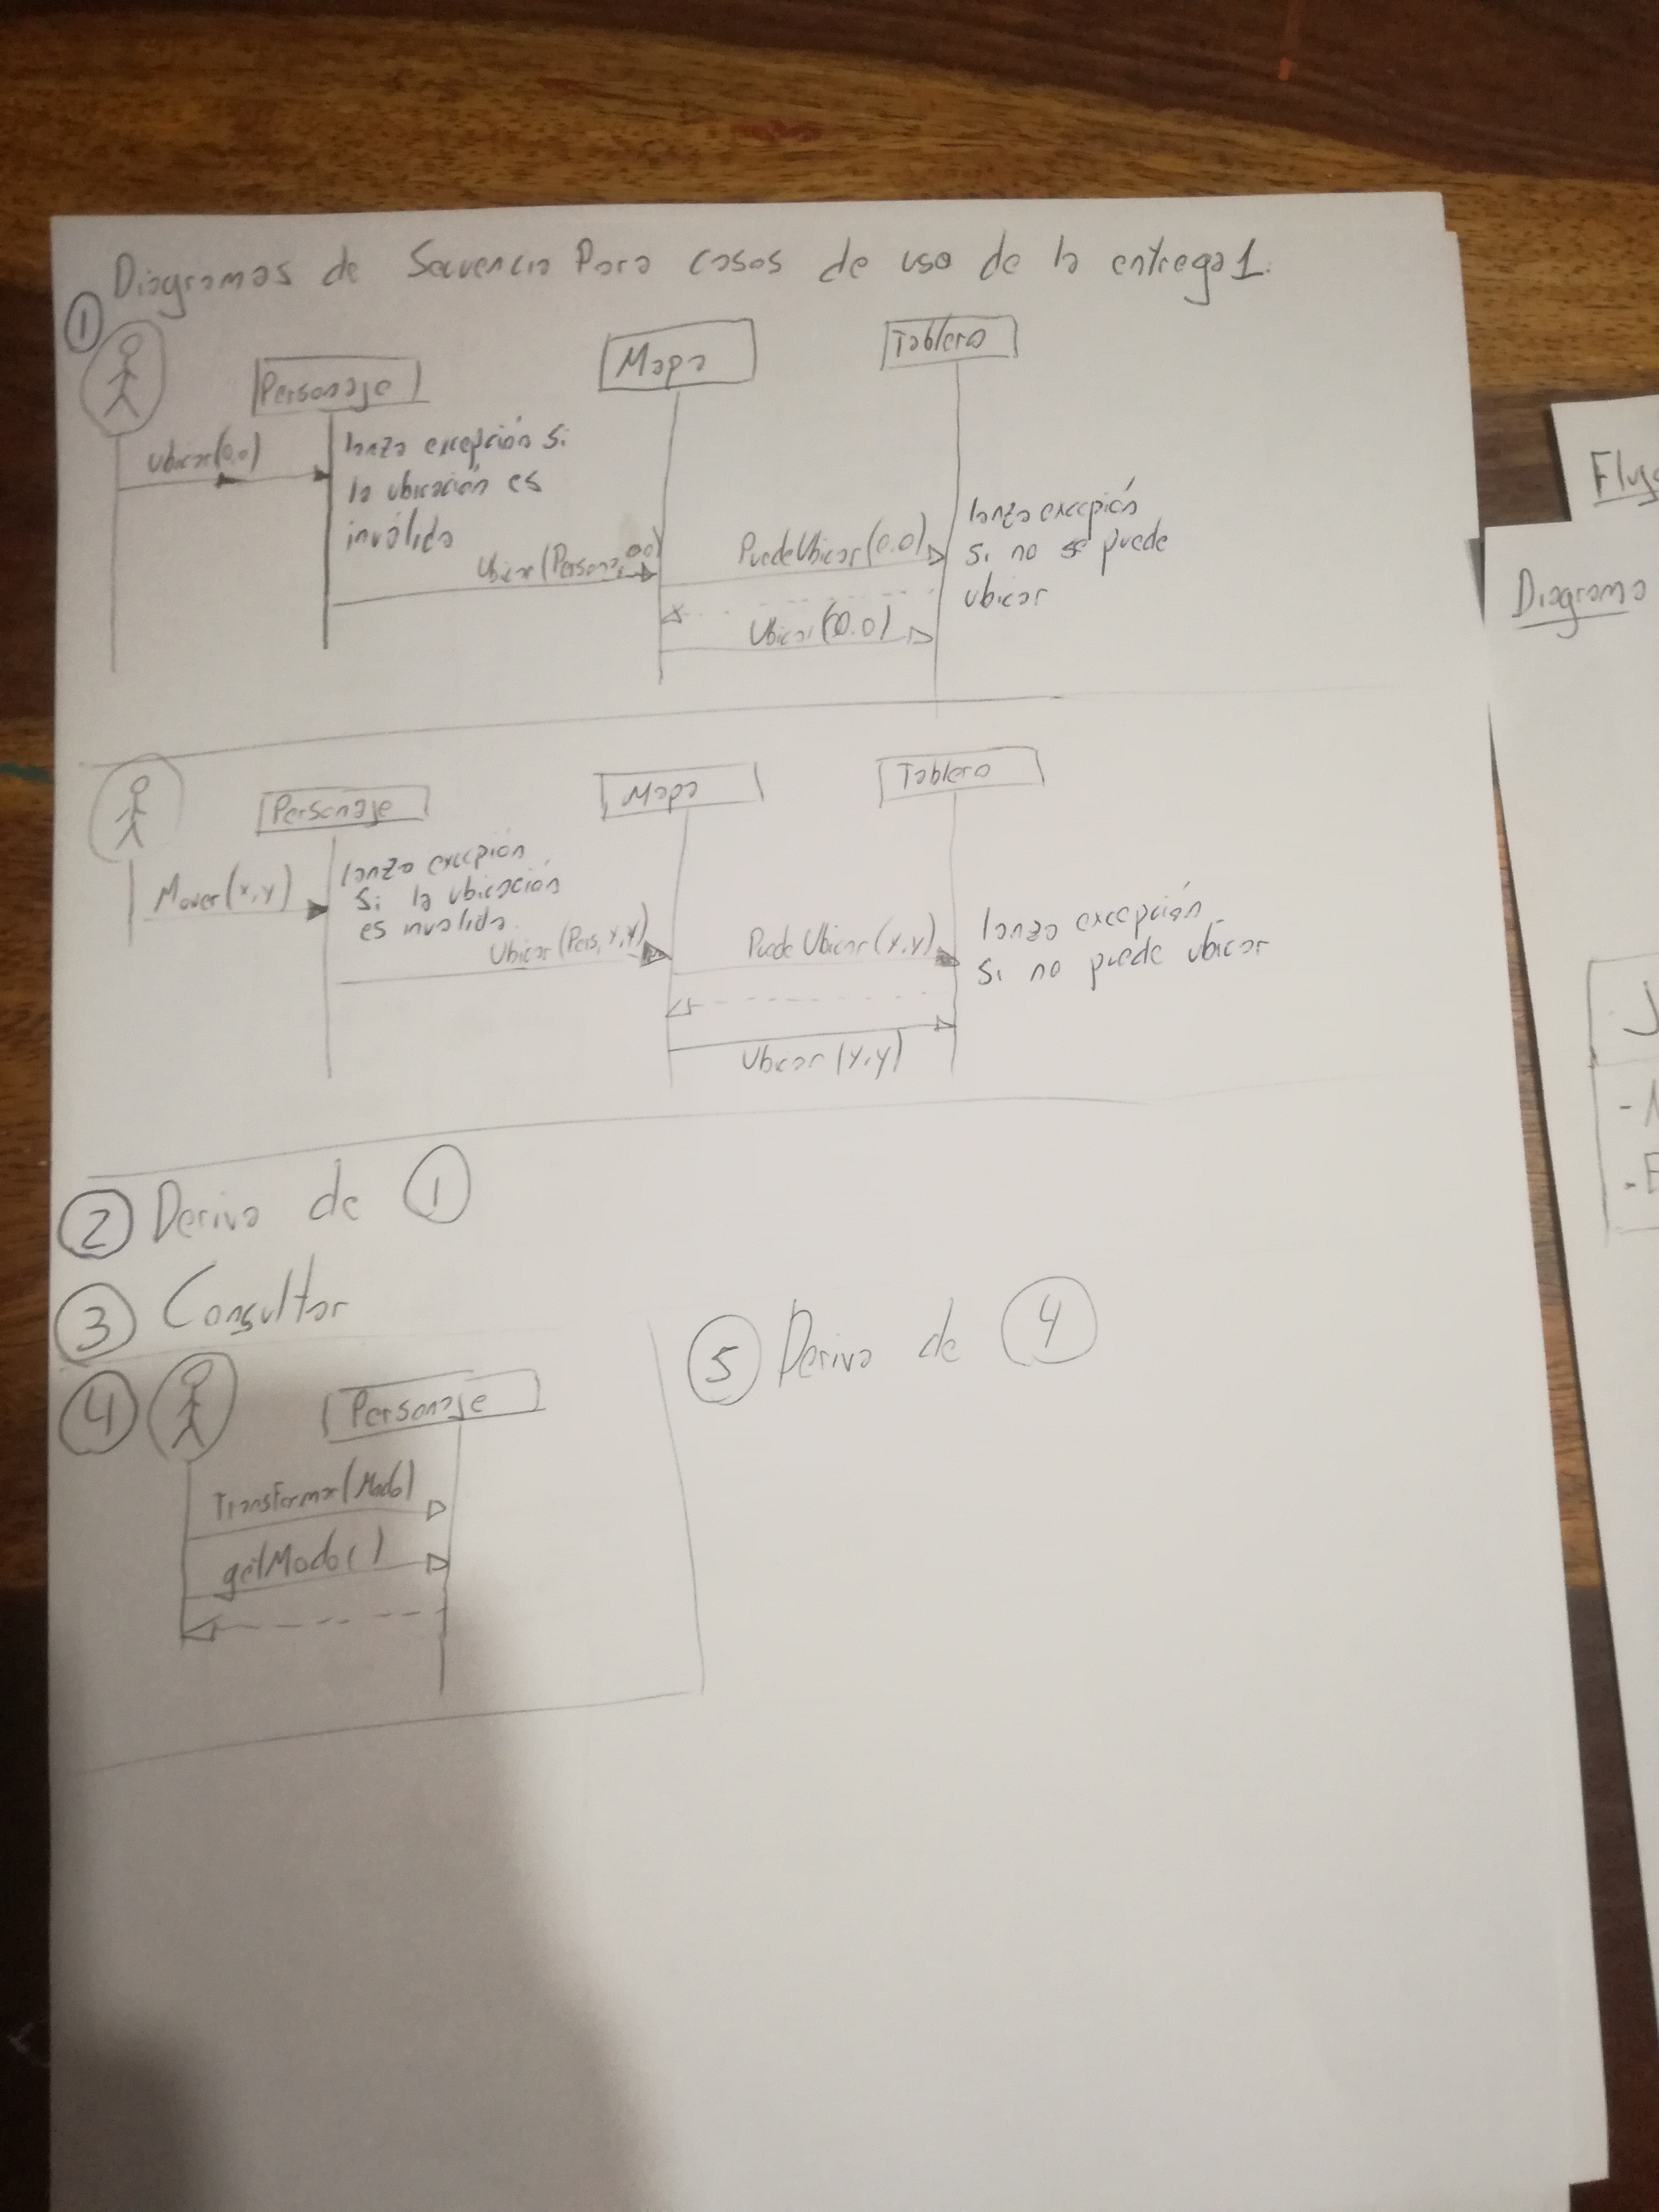 Diagramas de Secuencia Para casos de uso de la entrega 1.
1
Personaje
Mapa
Tablero
Ubicar(0,0)
lanza excepción si
la ubicación es
inválida
Ubicar(Persona, 0,0)
PuedeUbicar(0,0)
lanza excepción
si no se puede
ubicar
Ubicar(0,0)
Personaje
Mapa
Tablero
Mover(x,y)
lanza excepción
si la ubicación
es invalida.
Ubicar(Pers, x,y)
PuedeUbicar(x,y)
lanza excepción
si no puede ubicar
Ubicar(x,y)
2 Deriva de 1
3 Consultar
4
Personaje
Transformar(Modo)
getModo()
5 Deriva de 4
Diagrama